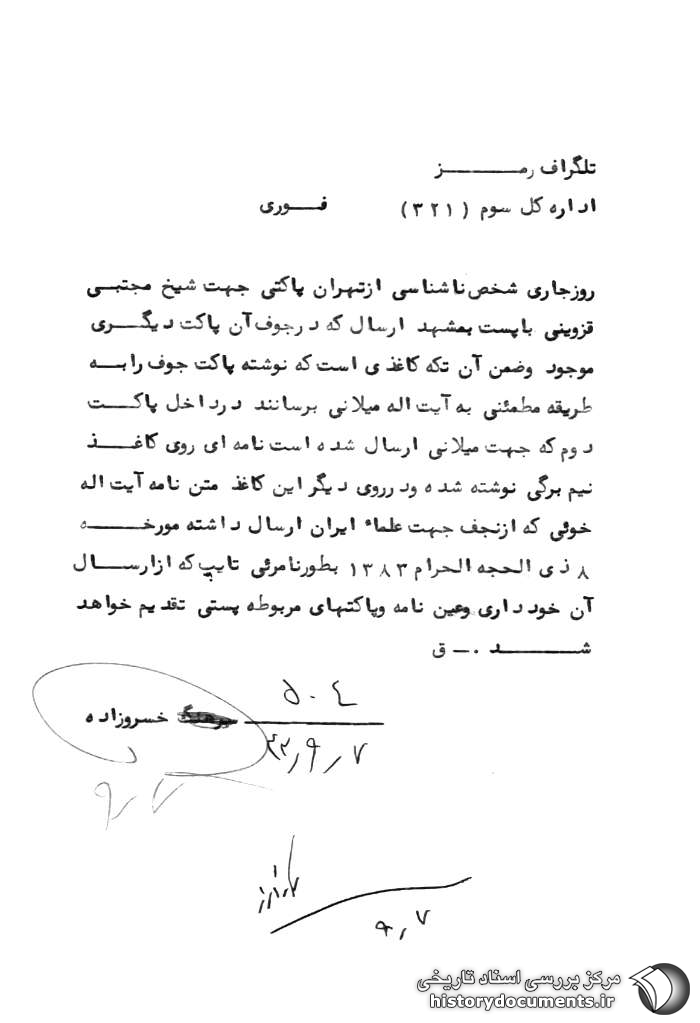 تلگراف رمـــــــز
اداره کل سوم (۳۲۱) فـــوری
روزجاری شخص ناشناسی ازتهران پاکتی جهت شیخ مجتبی
قزوینی باپست بمشهد ارسال که درجوف آن پاکت دیگـــری
موجود وضمن آن تکه کاغذی است که نوشته پاکت جوف رابـــه
طریقه مطمئنی به آیت اله میلانی برسانند درداخل پاکـــت
دوم که جهت میلانی ارسال شده است نامه ای روی کاغـــذ
نیم برگی نوشته شده ودرروی دیگر این کاغذ متن نامه آیت اله
خوئی که ازنجف جهت علماء ایران ارسال داشته مورخـــه
۸ ذی الحجه الحرام ۱۳۸۳ بطورنامرئی تایپ که ازارســـال
آن خودداری وعین نامه وپاکتهای مربوطه پستی تقدیم خواهد
شـــــد .ـ ق
۵۰۴
خسروزاده
۴۳٫۹٫۷
۹٫۷
۹٫۷
مرکز بررسی اسناد تاریخی
historydocuments.ir